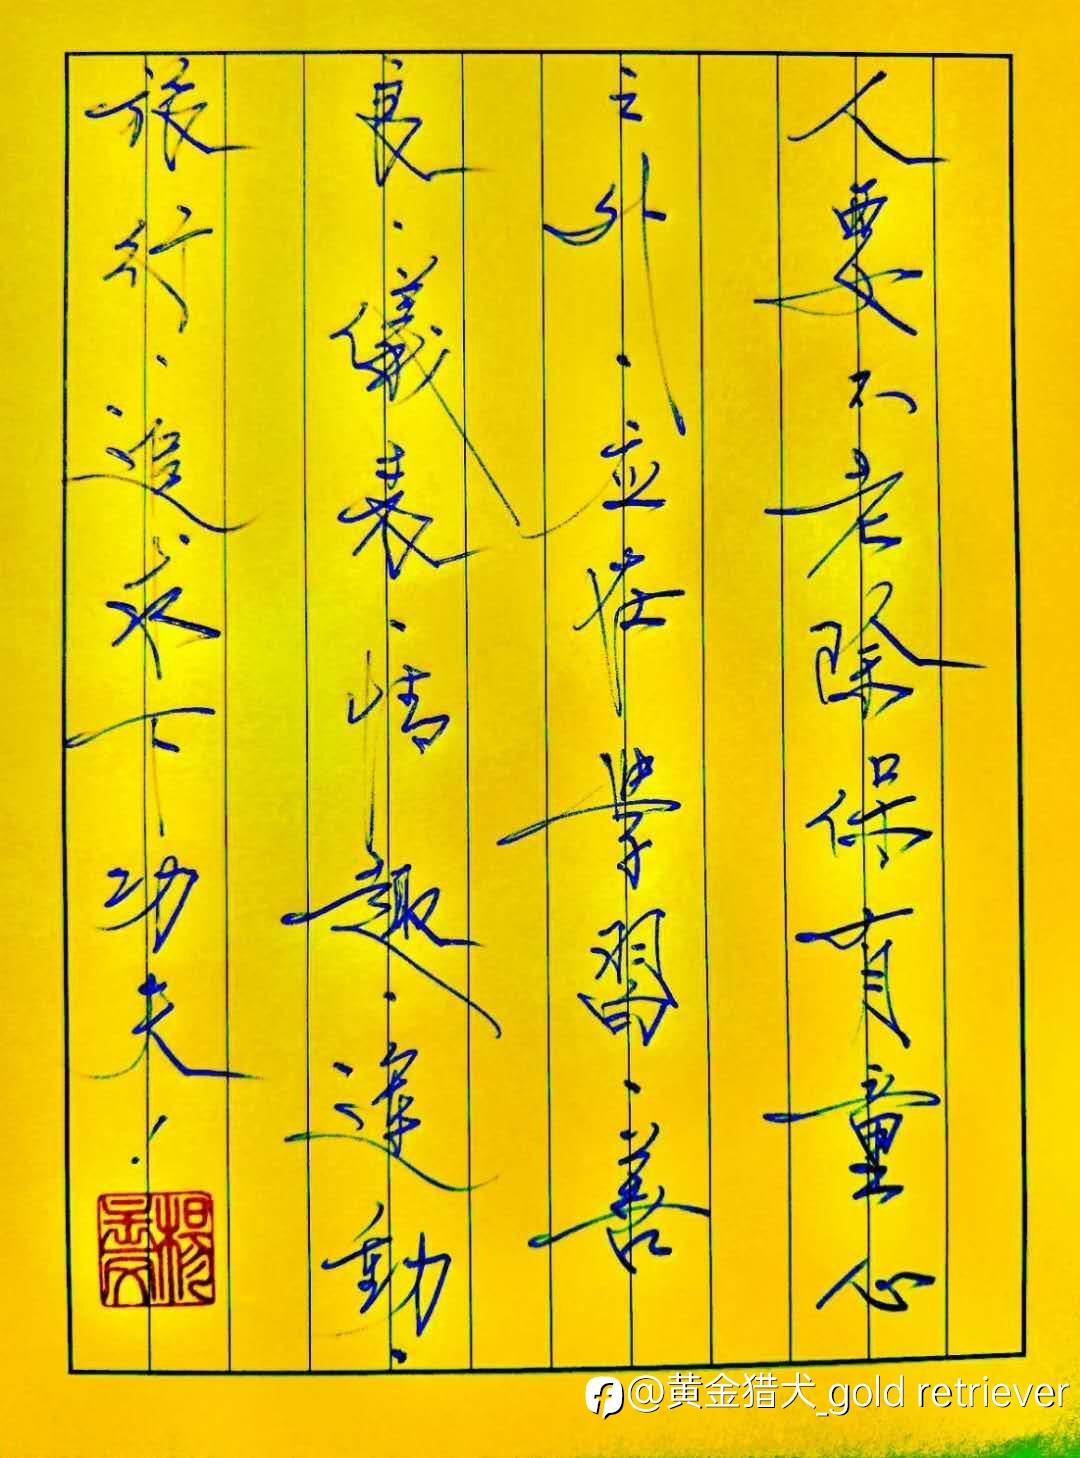 人要不老除保有童心
之外·应在学習·善
良·儀表·情趣·運動·
旅行·追求下功夫！
@黄金猎犬_gold retriever